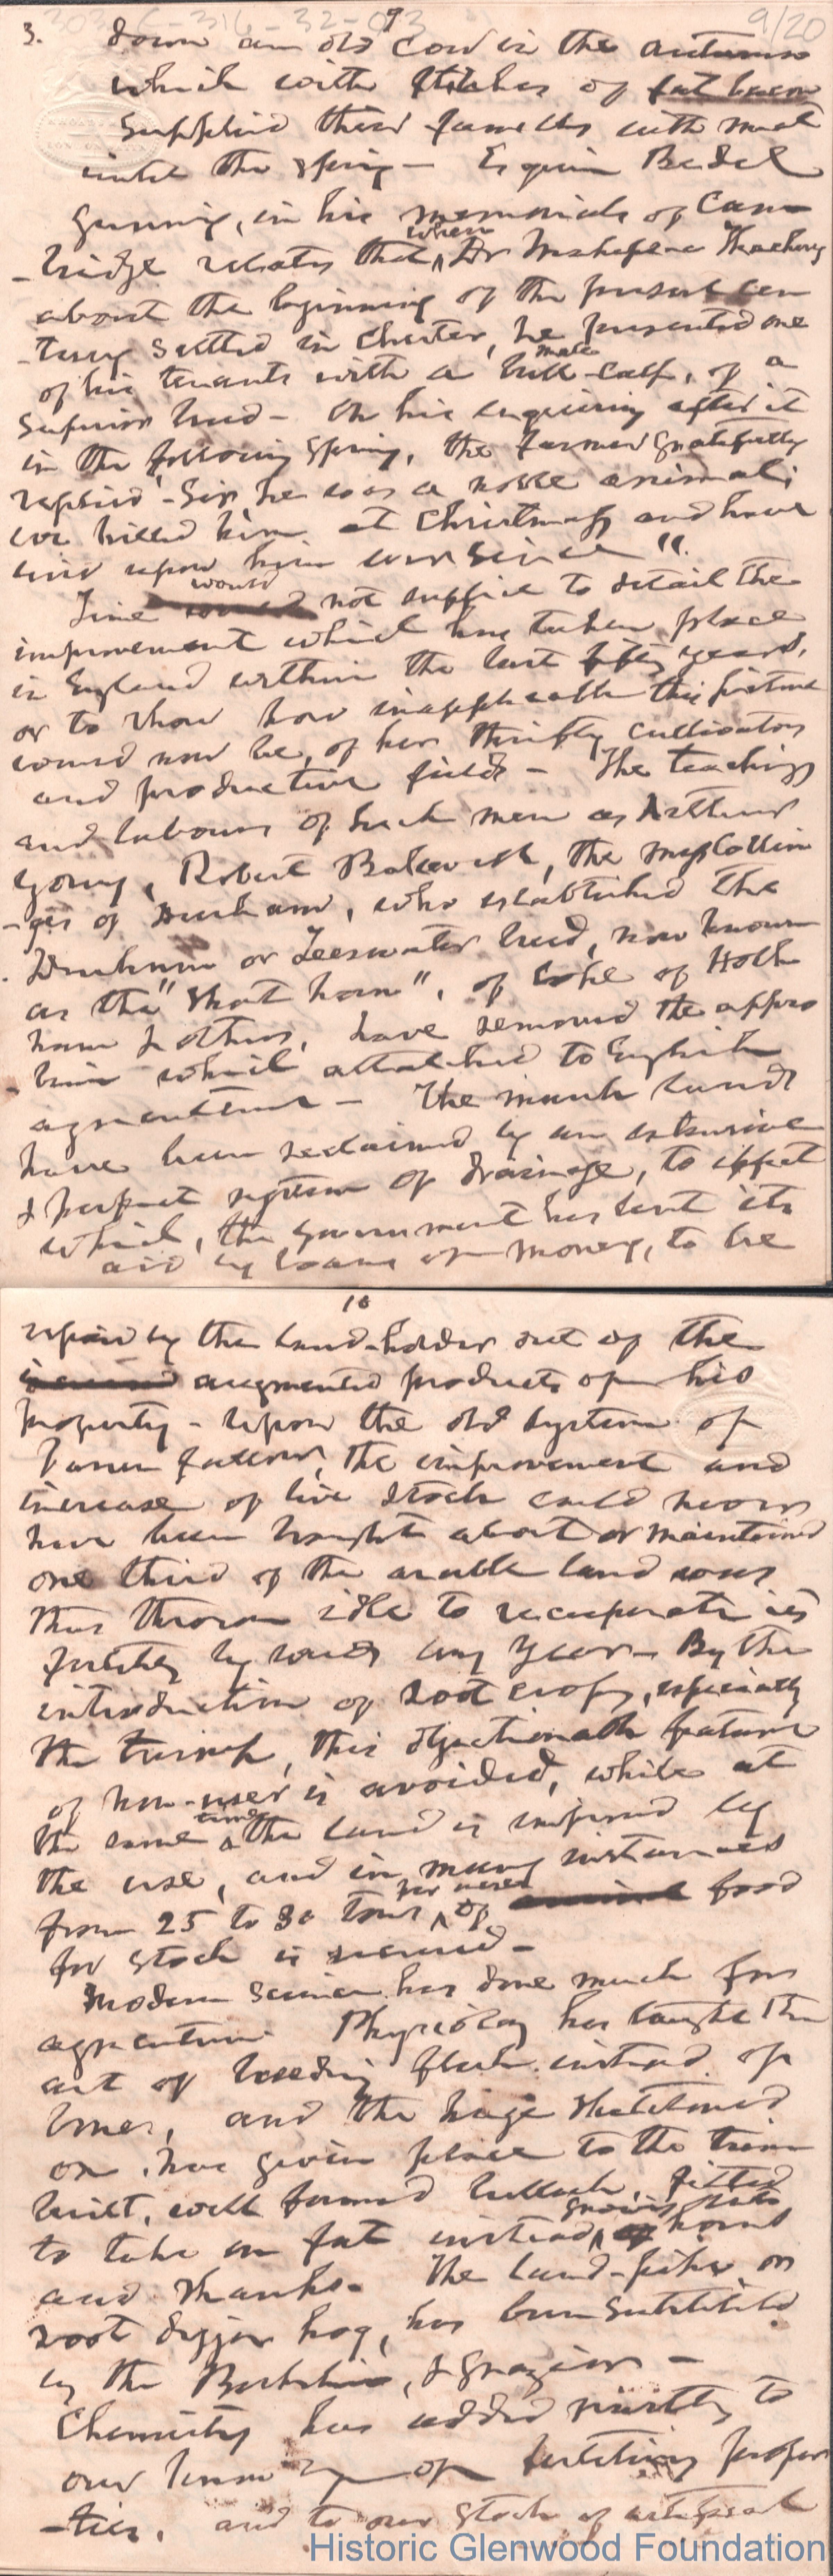 9
9/20
3.
down an old cow in the autumn
which with flitches of fat bacon
supplied their families with meat
until the spring - Esquire Bedel
Gunning, in his memorials of Cam
-bridge relates that when Dr Makepeace Thackery
about the beginning of the present cen
-tury settled in Chester, he presented one
of his tenants with a male bull-calf, of a
superior breed - On his enquiring after it
in the following spring, the farmer gratefully
replied "Sir, he was a noble animal;
we killed him at Christmass and have
lived upon him ever since".
Time would not suffice to detail the
improvement which has taken place
in England within the last fifty years,
or to show how inapplicable this picture
would now be, of her thrifty cultivators
and productive fields - The teachings
and labours of such men as Arthur
Young, Robert Bakewell, the Mess Collin
-ges of Durham, who established the
Durham or Teeswater breed, now known
as the "Short horn", of Coke of Holk
ham & others, have removed the oppro
-brium which attached to English
agriculture - The marsh lands
have been reclaimed by an extensive
& perfect system of drainage, to effect
which, the government has lent its
aid by loans of money, to be
10
repaid by the land-holder out of the
augmented products of his
property - Upon the old system of
barren fallows, the improvement and
increase of live stock could never
have been brought about or maintained
one third of the arable land was
thus thrown idle to recuperate its
fertility by every year - By the
introduction of root crops, especially
the turnip, this objectionable feature
of non-user is avoided, while at
the same time the land is improved by
the use, and in many instances
from 25 to 30 tons per acre of food
for stock is secured -
Modern science has done much for
agriculture. Physiology has taught the
art of breeding flesh instead of
bones, and the huge skeletoned
ox has given place to the trim
built, well formed bullock, fitted
to take on fat instead growing into horns
and shanks. The land-pike, or
root digger hog, has been substituted
by the Berkshire, & grazier -
Chemistry has added vastly to
our knowledge of fertilizing proper
-ties, and to our stock of artificial
Historic Glenwood Foundation